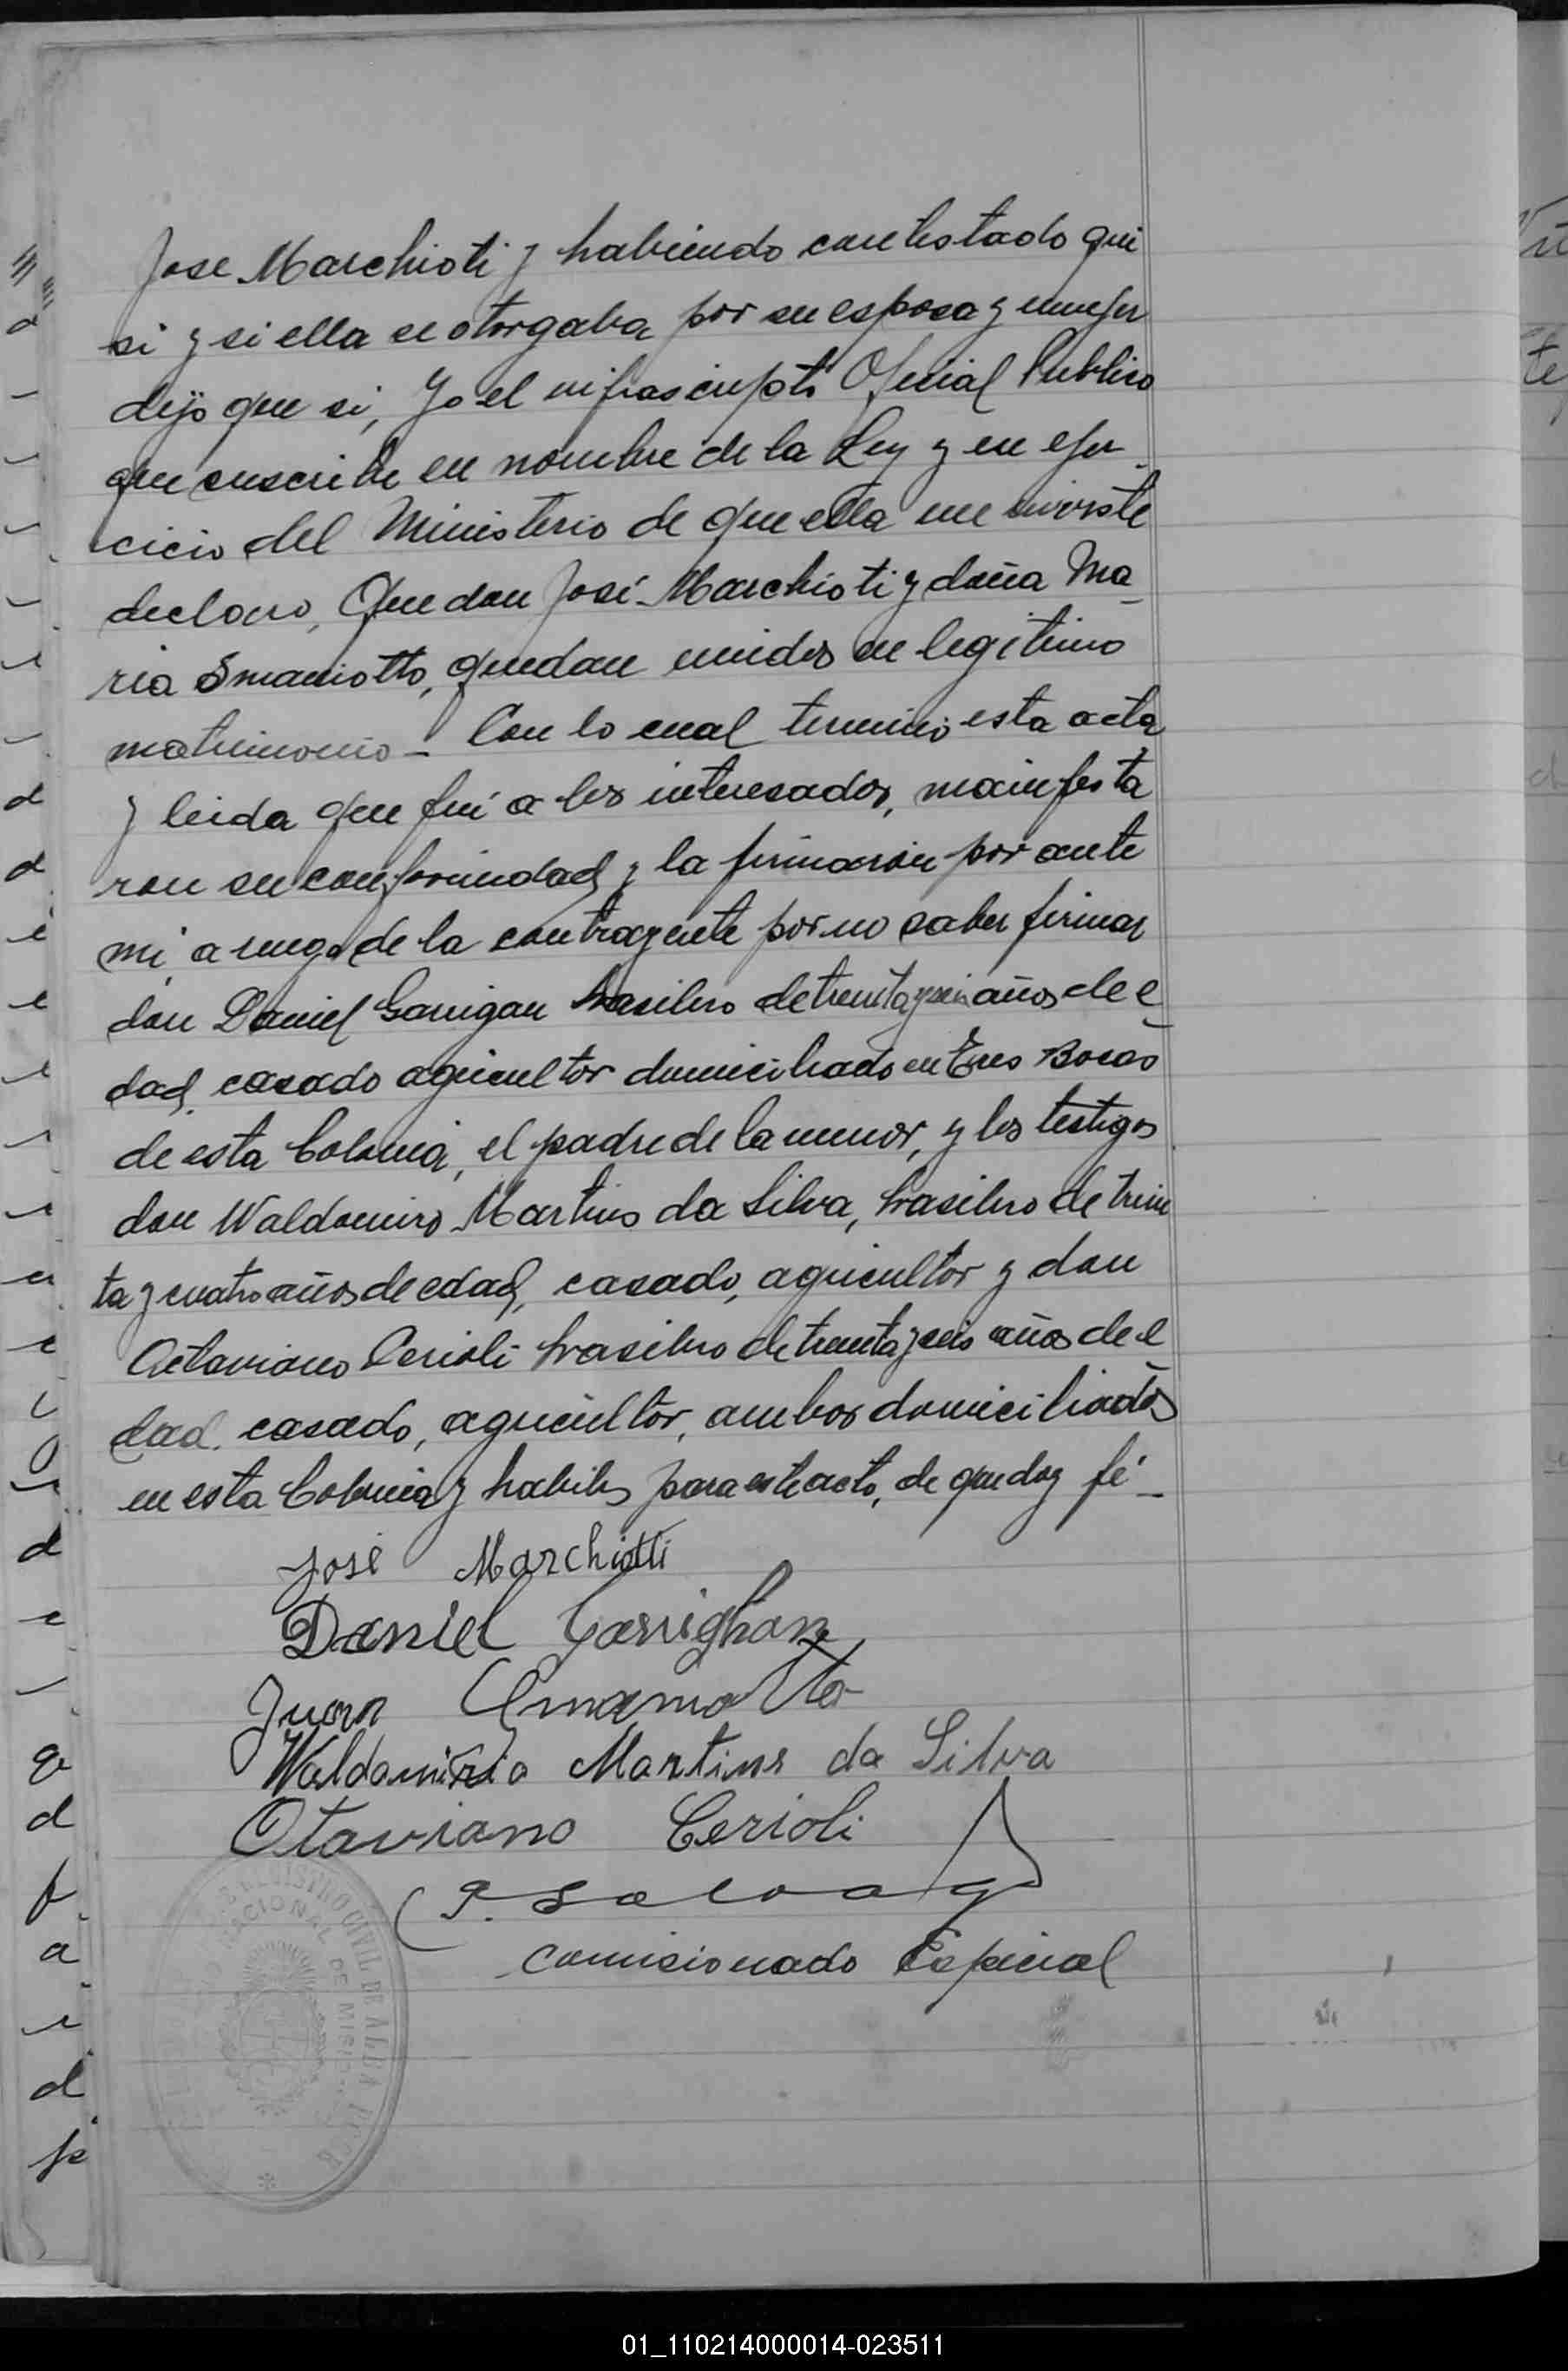 Jose Marchioti y habiendo contestado que
si y si ella se otorgaba por su esposa y mujer
dijo que si, Yo el infrascripto Oficial Publico
que suscribe en nombre de la Ley y en ejer
cicio del Ministerio de que ella me inviste
declaro, Que don José Marchioti y doña Ma_
ria Smaniotto, quedan unidos en legitimo
matrimonio - Con lo cual terminó esta acta
y leida que fué a los interesados, manifesta
ron su conformidad y la firmarón por ante
mi a ruego de la contrayente por no saber firmar
don Daniel Garrigan brasilero de treinta y seis años de e_
dad, casado agricultor domiciliado en Tres Bocas
de esta Colonia, el padre de la menor, y los testigos
don Waldomiro Martins da Silva, brasilero de trein
ta y cuatro años de edad, casado, agricultor y don
Octaviano Cerioli brasilero de treinta y seis años de e_
dad. casado, agricultor, ambos domiciliados
en esta Colonia y habiles para este acto, de que doy fé_
José Marchiotti
Daniel Garrighan
Juan Smaniotto
Waldomiro Martins da Silva
Otaviano Cerioli
Comisionado Especial
REGISTRO CIVIL DE
NACIONAL DE MISIONES
01_110214000014-023511